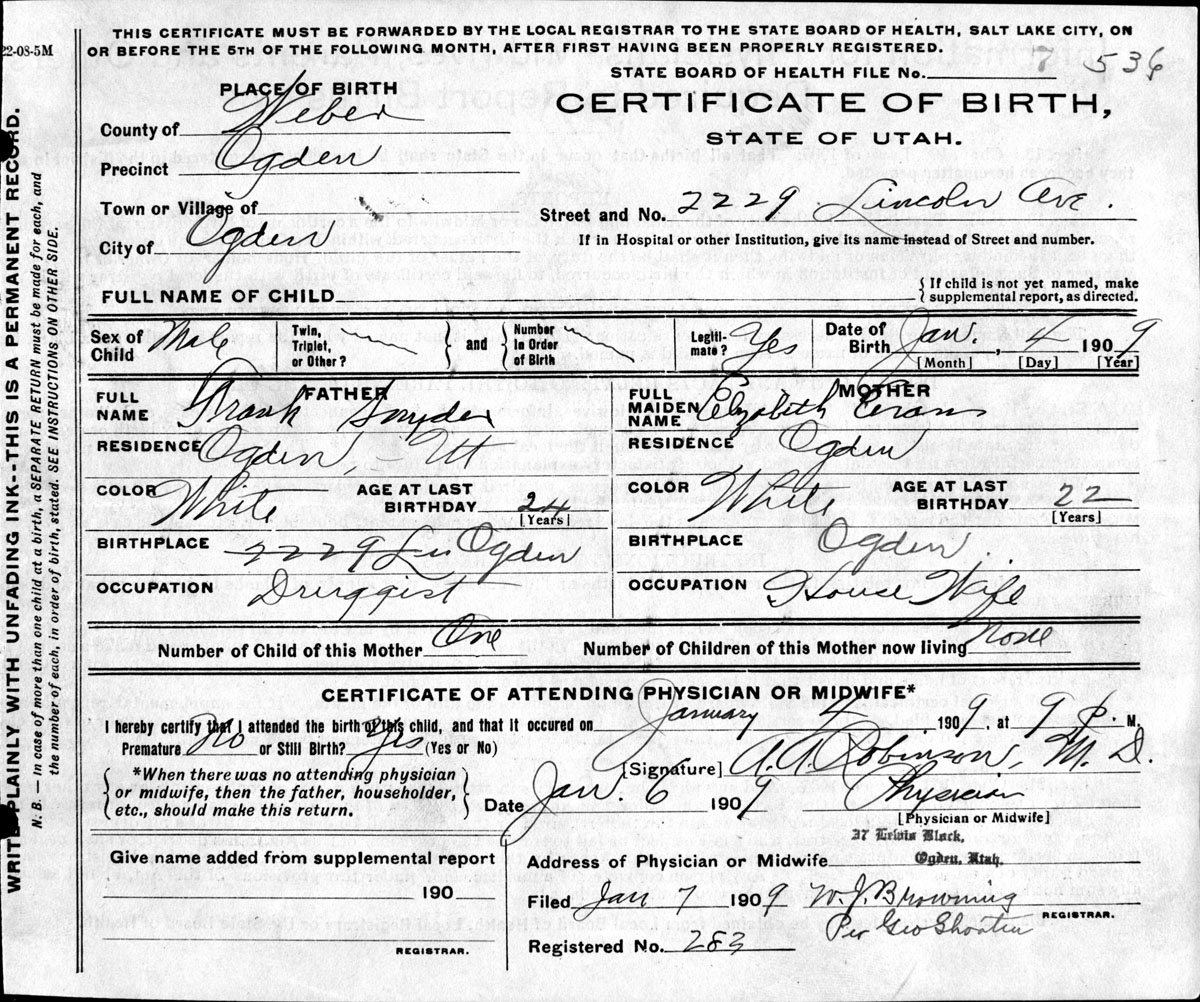 THIS CERTIFICATE MUST BE FORWARDED BY THE LOCAL REGISTRAR TO THE STATE BOARD OF HEALTH, SALT LAKE CITY, ON
22-08-5M
OR BEFORE THE 5TH OF THE FOLLOWING MONTH, AFTER FIRST HAVING BEEN PROPERLY REGISTERED.
STATE BOARD OF HEALTH FILE No. 7 536
PLACE OF BIRTH
CERTIFICATE OF BIRTH,
STATE OF UTAH.
County of Weber
Precinct Ogden
Town or Village of
Street and No. 2229 Lincoln Ave.
City of Ogden
If in Hospital or other Institution, give its name instead of Street and number.
FULL NAME OF CHILD
{ If child is not yet named, make
supplemental report, as directed.
Sex of Child Male
Twin, Triplet, or Other?
} and {
Number in Order of Birth
Legiti-mate? Yes
Date of Birth Jan. 4 1909
[Month] [Day] [Year]
FATHER
FULL NAME Frank Snyder
RESIDENCE Ogden Ut
COLOR White
AGE AT LAST BIRTHDAY 24
[Years]
BIRTHPLACE 2229 Lin Ogden
OCCUPATION Druggist
MOTHER
FULL MAIDEN NAME Elizabeth Evans
RESIDENCE Ogden
COLOR White
AGE AT LAST BIRTHDAY 22
[Years]
BIRTHPLACE Ogden.
OCCUPATION House Wife
Number of Child of this Mother One
Number of Children of this Mother now living None
CERTIFICATE OF ATTENDING PHYSICIAN OR MIDWIFE*
I hereby certify that I attended the birth of this child, and that it occured on January 4, 1909 at 9 P. M.
Premature No or Still Birth? Yes (Yes or No)
[Signature] A. A. Robinson, M. D.
{ *When there was no attending physician
or midwife, then the father, householder,
etc., should make this return. }
Date Jan 6 1909
Physician
[Physician or Midwife]
37 Lewis Block,
Give name added from supplemental report
Address of Physician or Midwife Ogden, Utah.
190
Filed Jan 7 1909 W. J. Browning
REGISTRAR.
Per Geo Shorten
Registered No. 283
REGISTRAR.
WRITE PLAINLY WITH UNFADING INK--THIS IS A PERMANENT RECORD.
N. B. — In case of more than one child at a birth, a SEPARATE RETURN must be made for each, and
the number of each, in order of birth, stated. SEE INSTRUCTION ON OTHER SIDE.